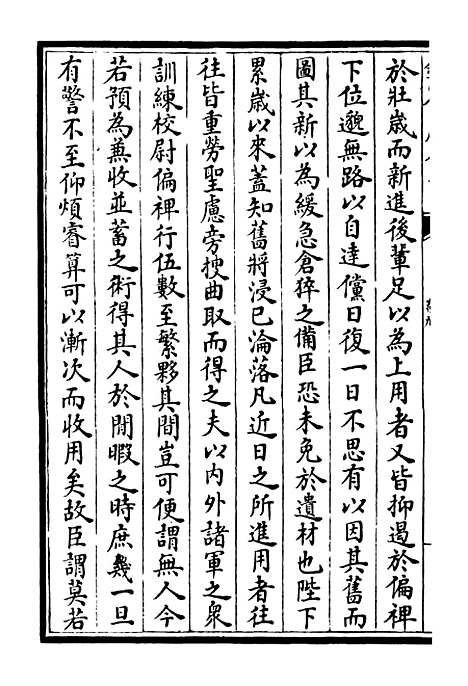 於壯歲而新進後輩足以為上用者又皆抑遏於偏裨
下位邈無路以自達儻日復一日不思有以因其舊而
圖其新以為緩急倉猝之備臣恐未免於遺材也陛下
累歲以來蓋知舊將浸已淪落凡近日之所進用者往
往皆重勞聖慮旁捜曲取而得之夫以内外諸軍之衆
訓練校尉偏裨行伍數至繁夥其間豈可便謂無人今
若預為蕪收並蓄之術得其人於閒暇之時庶幾一旦
有警不至仰煩睿算可以漸次而收用矣故臣謂莫若